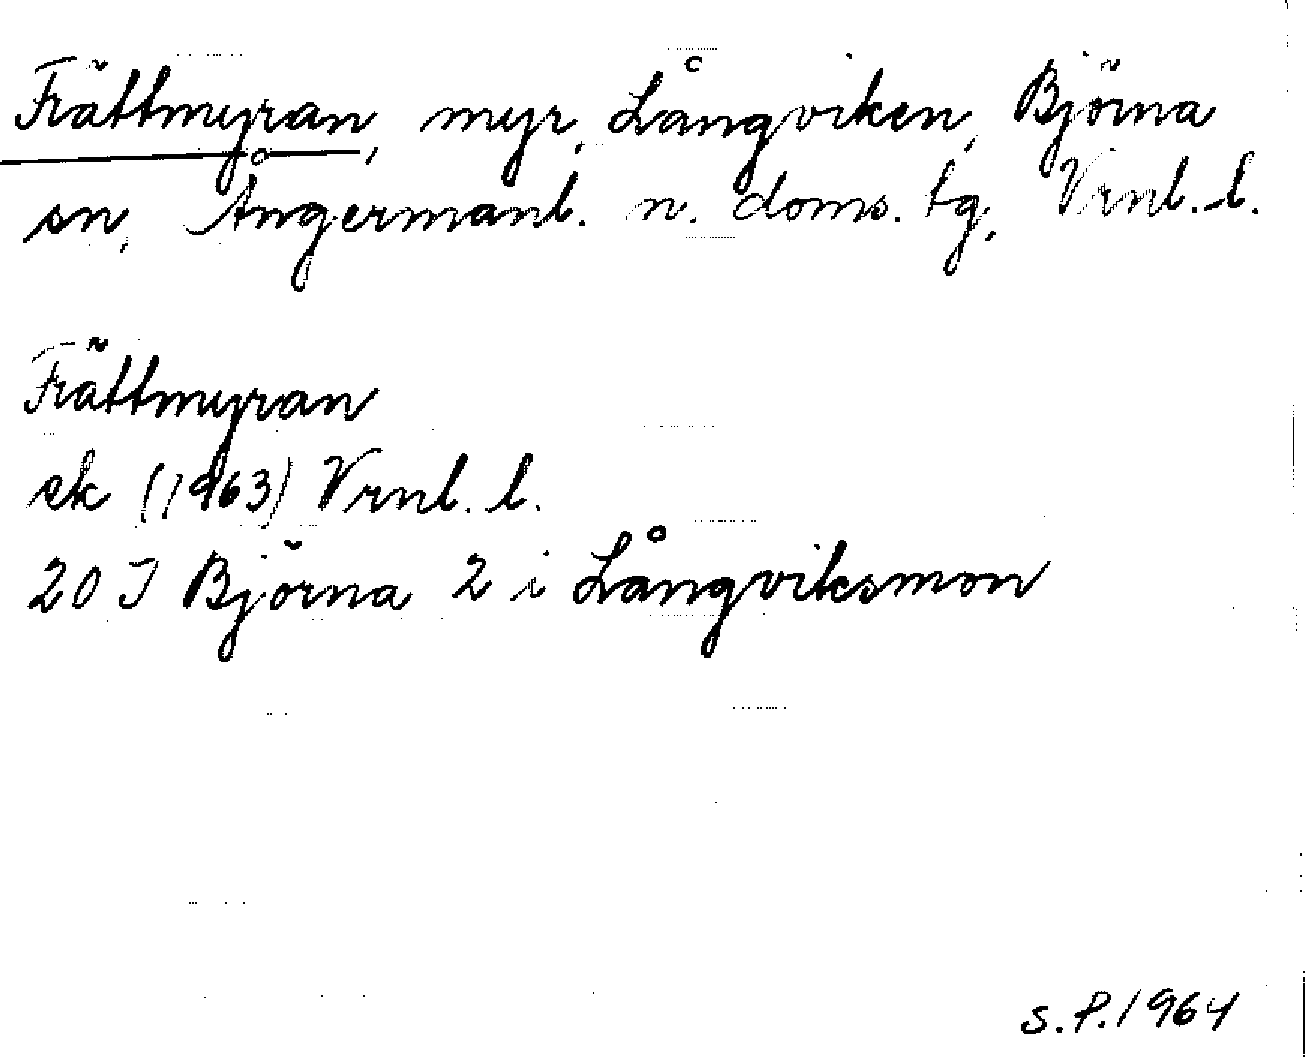 Frättmyran, myr, Långviken, Björna
sn, Ångermanl. n. doms. tg, Vrnl. l.
Frättmyran
ek (1963) Vrnl. l.
20 I Björna 2 i Långviksmon
S.P. 1964